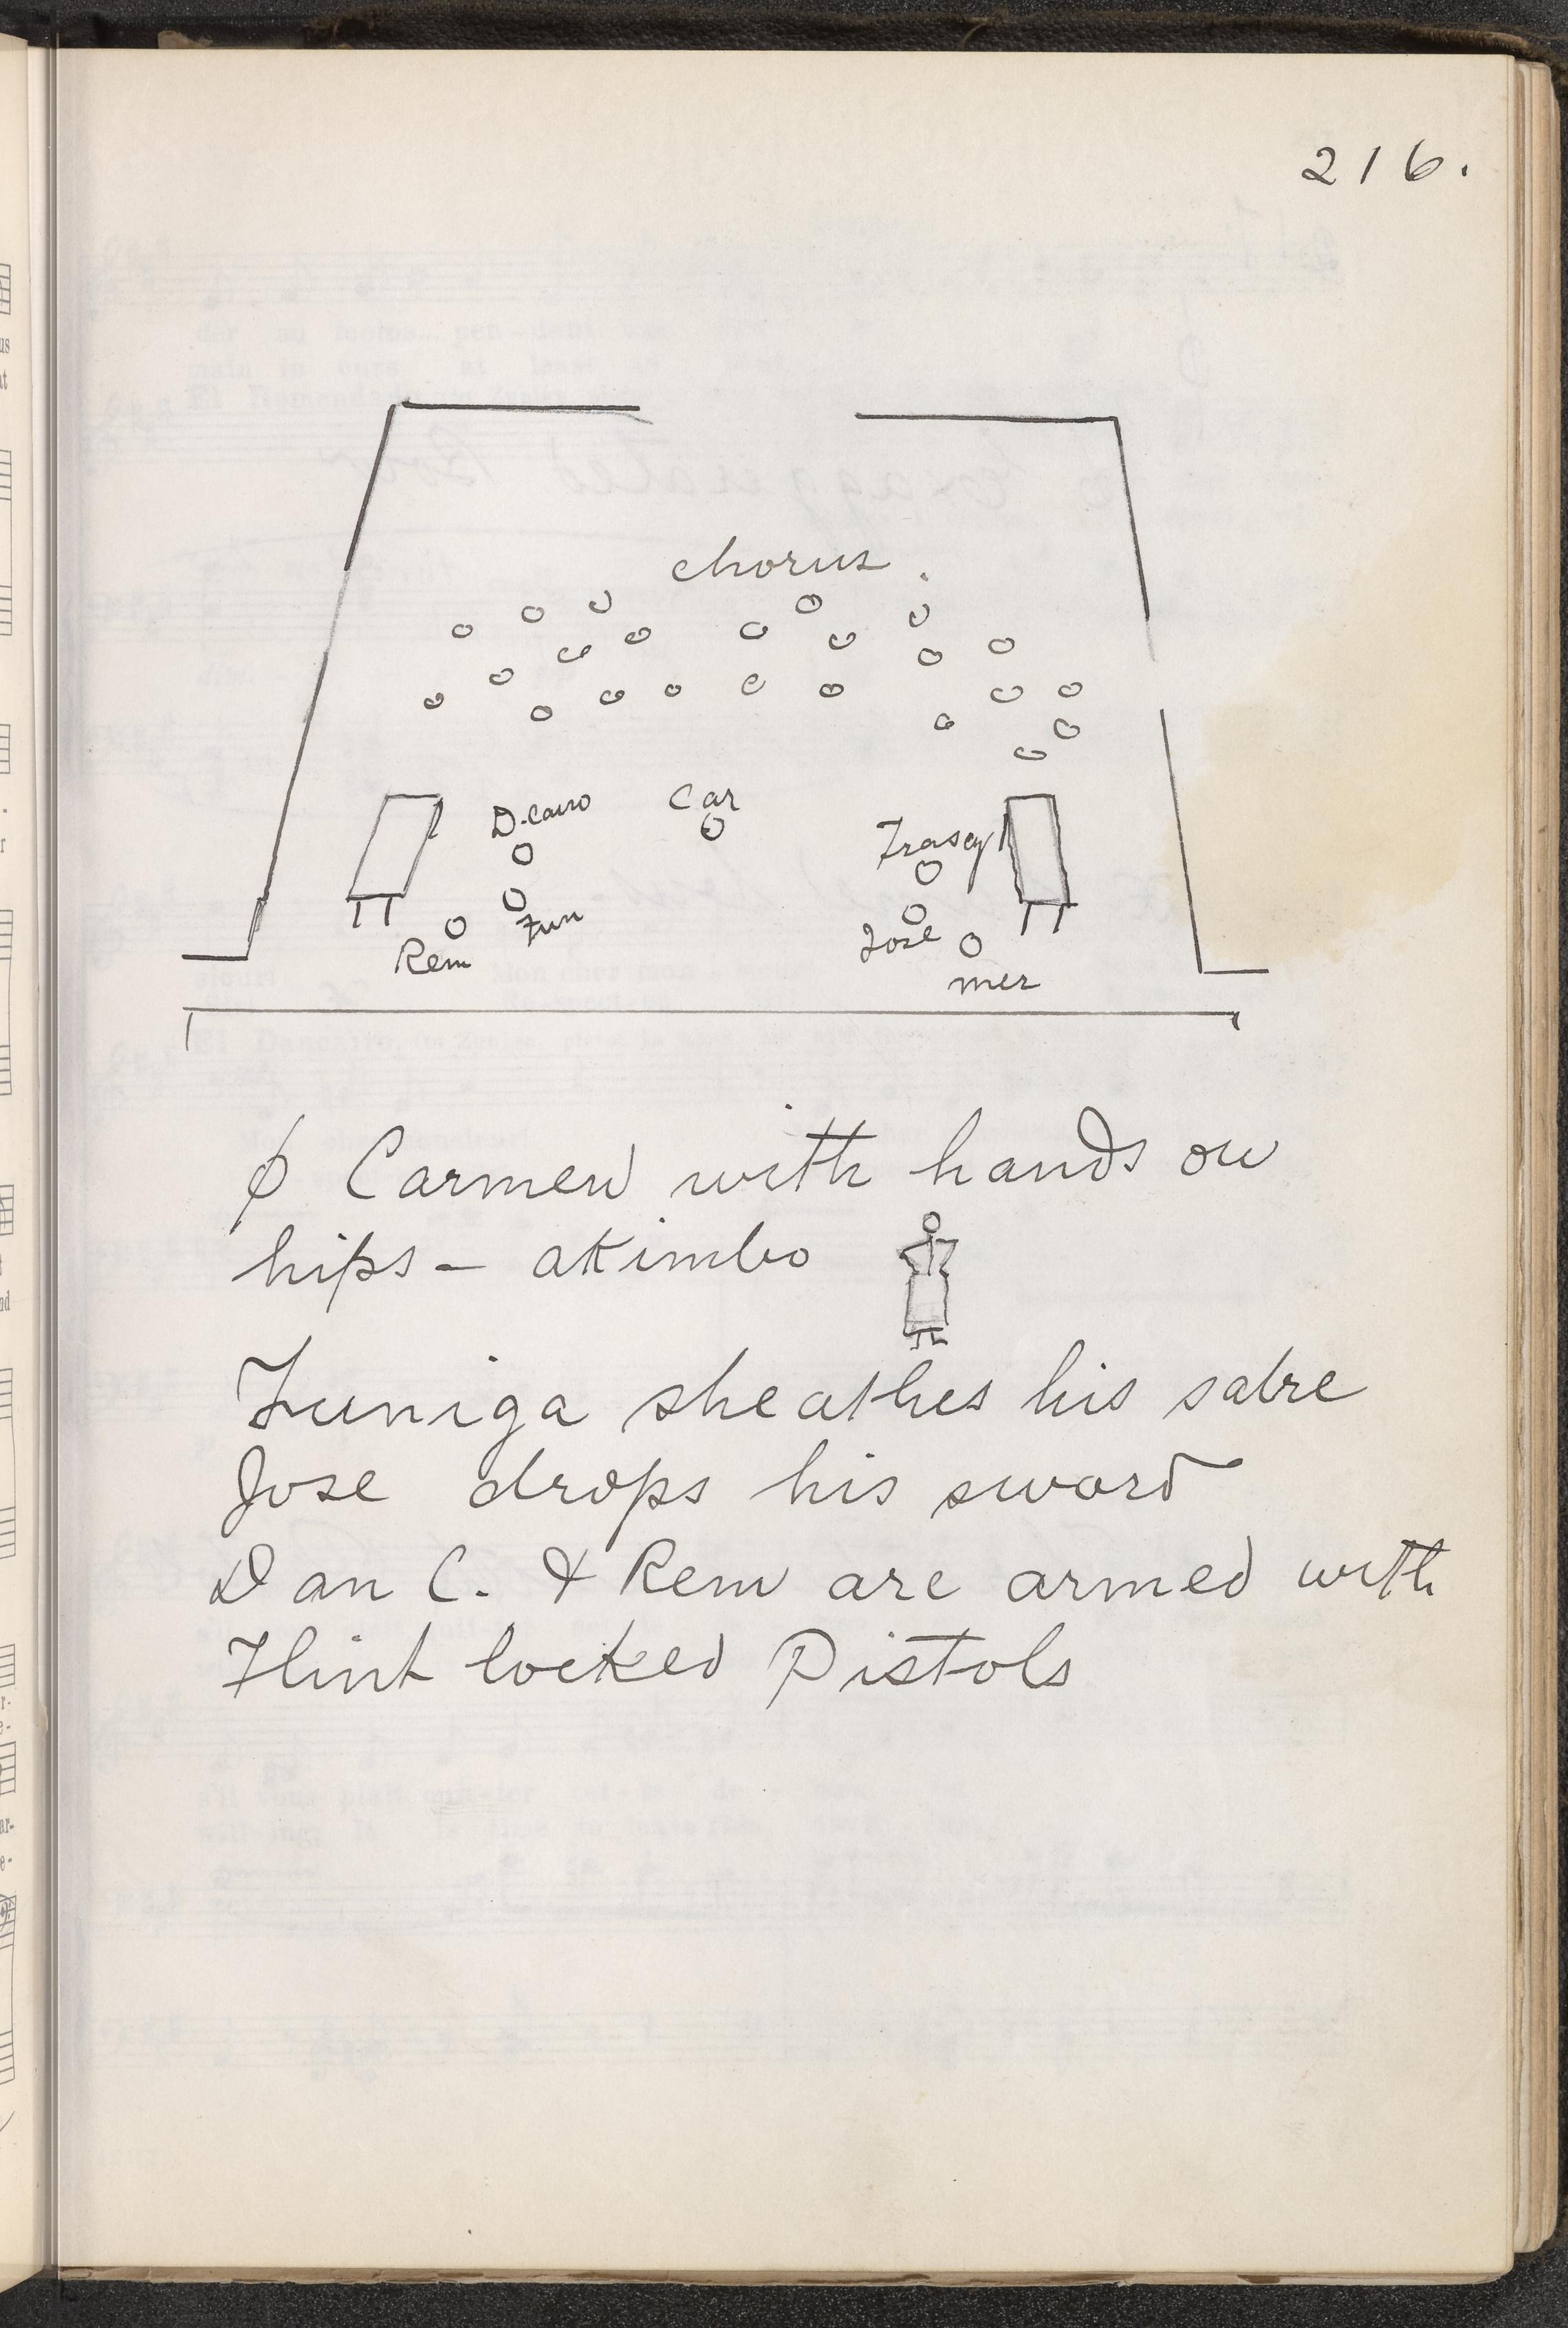 216.
chorus.
D. Cairo
Car
Frasq
Zun
Rem
Jose
mer
ϕ Carmen with hands on
hips - akimbo
Zuniga sheathes his sabre
Jose drops his sword
Dan C. & Rem are armed with
Flint locked Pistols